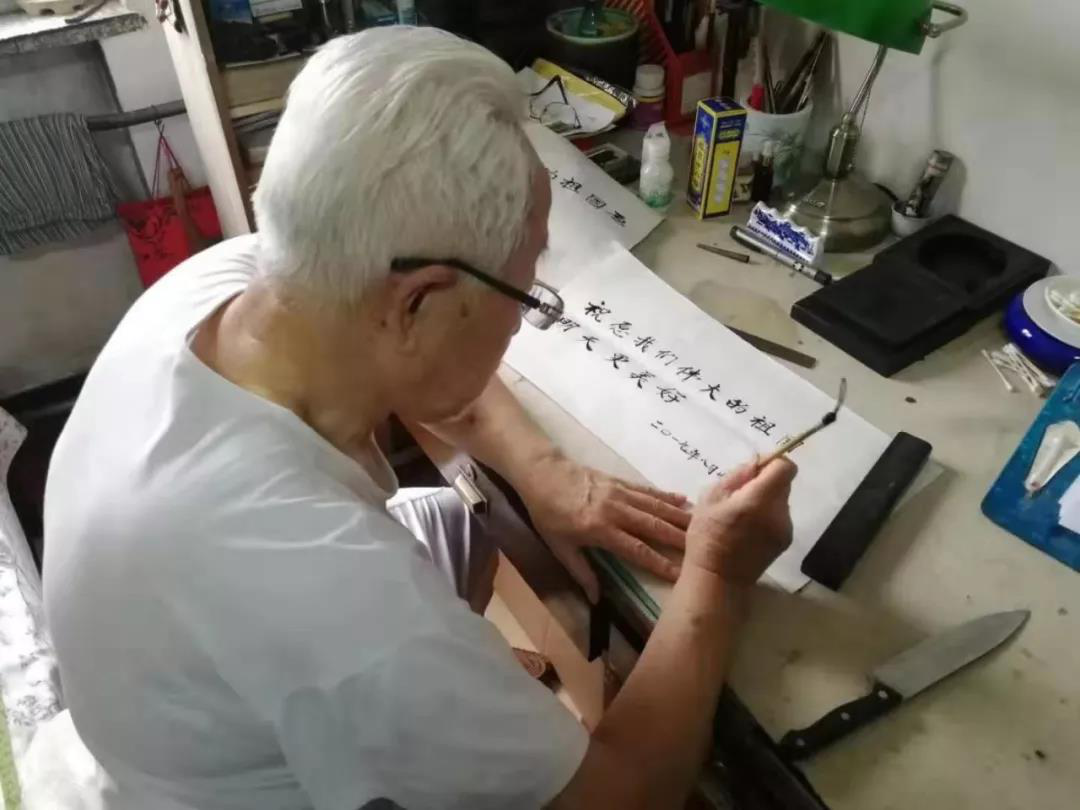 祖国
祝愿我们伟大的祖
明天更美好
二〇一九年八月